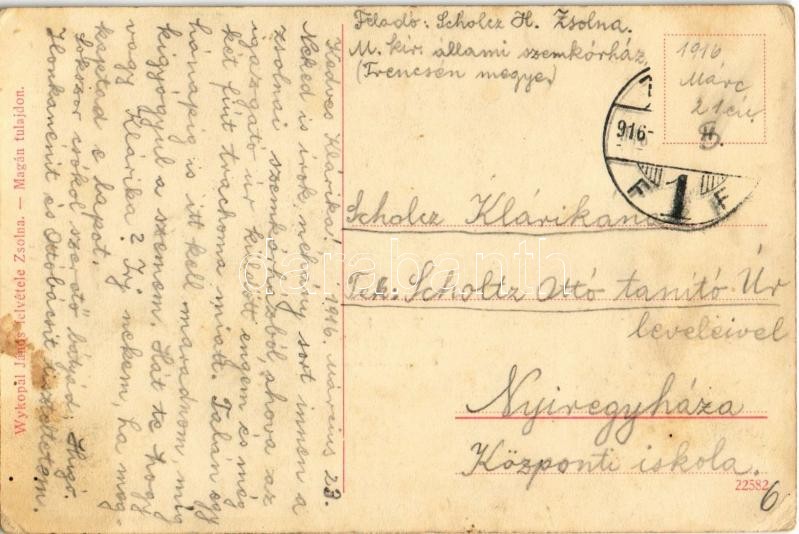 Feladó: Scholcz H. Zsolna.
M. kir. állami szemkórház
(Trencsén megye)
1916
Márc
21én.
916-
1
F F
Scholcz Klárikának
Tek: Scholtz Ottó tanító Úr
leveleivel
Nyiregyháza
Központi iskola.
22582
6
Kedves Klárika! 1916. március 23.
Neked is írok nehány sort innen a
zsolnai szemkórházból, ahova az
igazgató úr küldött engem és még
két fiút trachoma miatt. Talán egy
hónapig is itt kell maradnom, míg
kigyógyul a szemem. Hát te hogy
vagy Klárika? Írj nekem, ha meg-
kaptad e lapot.
Sokszor csókol szerető bátyád: Hugó.
Ilonkanénit és Ottóbácsit tisztelem.
Wykopál János felvétele Zsolna. — Magán tulajdon.
darabanth